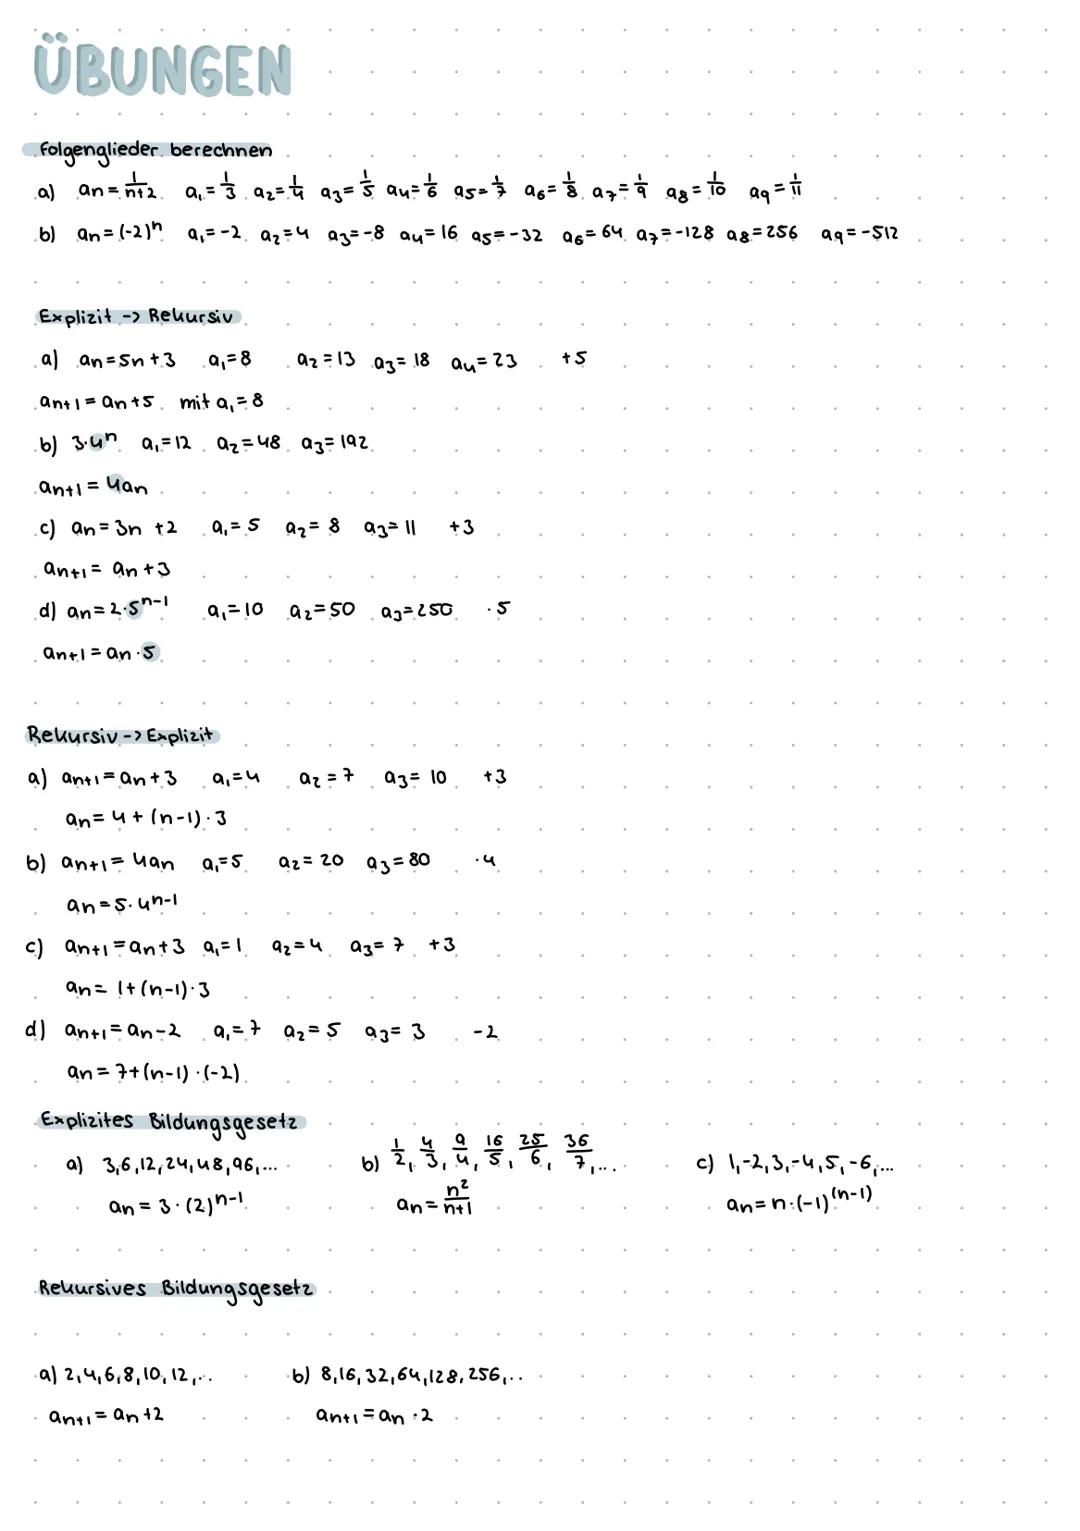 ÜBUNGEN
Folgenglieder berechnen
a) an = 1/n+2 a₁ = 1/3 a₂ = 1/4 a₃ = 1/5 a₄ = 1/6 a₅ = 1/7 a₆ = 1/8 a₇ = 1/9 a₈ = 1/10 a₉ = 1/11
b) an = (-2)ⁿ a₁ = -2 a₂ = 4 a₃ = -8 a₄ = 16 a₅ = -32 a₆ = 64 a₇ = -128 a₈ = 256 a₉ = -512
Explizit -> Rekursiv
a) an = 5n + 3 a₁ = 8 a₂ = 13 a₃ = 18 a₄ = 23 +5
an+1 = an + 5 mit a₁ = 8
b) 3·4ⁿ a₁ = 12 a₂ = 48 a₃ = 192
an+1 = 4an
c) an = 3n + 2 a₁ = 5 a₂ = 8 a₃ = 11 +3
an+1 = an + 3
d) an = 2·5ⁿ⁻¹ a₁ = 10 a₂ = 50 a₃ = 250 ·5
an+1 = an · 5
Rekursiv -> Explizit
a) an+1 = an + 3 a₁ = 4 a₂ = 7 a₃ = 10 +3
an = 4 + (n-1) · 3
b) an+1 = 4an a₁ = 5 a₂ = 20 a₃ = 80 ·4
an = 5·4ⁿ⁻¹
c) an+1 = an + 3 a₁ = 1 a₂ = 4 a₃ = 7 +3
an = 1 + (n-1) · 3
d) an+1 = an - 2 a₁ = 7 a₂ = 5 a₃ = 3 -2
an = 7 + (n-1) · (-2)
Explizites Bildungsgesetz
a) 3,6,12,24,48,96,... b) 1/2, 4/3, 9/4, 16/5, 25/6, 36/7,... c) 1,-2,3,-4,5,-6,...
an = 3 · (2)ⁿ⁻¹ an = n²/n+1 an = n·(-1)⁽ⁿ⁻¹⁾
Rekursives Bildungsgesetz
a) 2,4,6,8,10,12,.. b) 8,16,32,64,128,256,..
an+1 = an + 2 an+1 = an · 2